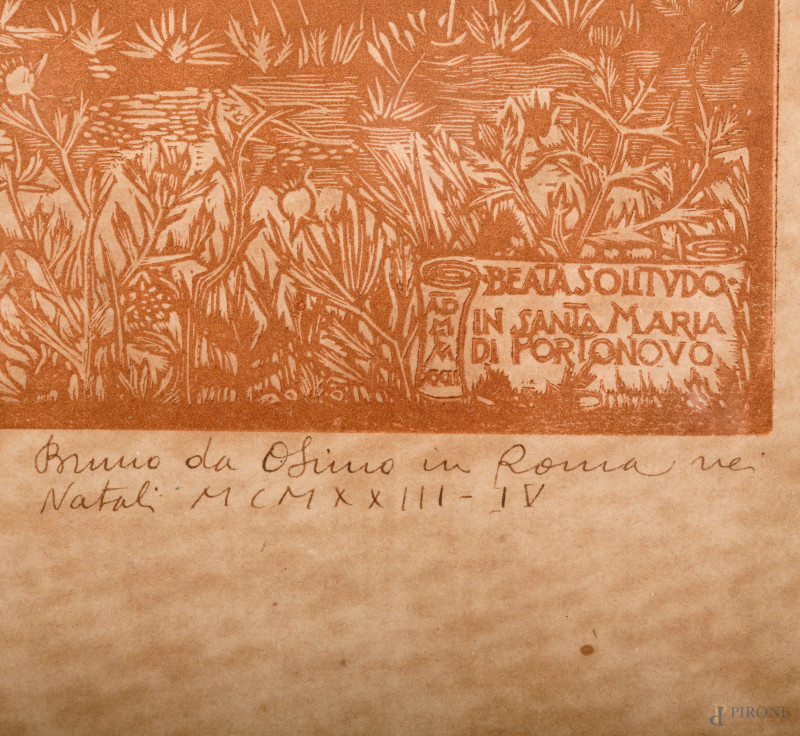 BEATA SOLITVDO
IN SANTA MARIA
DI PORTONOVO
AD
M
Bruno da Osimo in Roma nei
Natali MCMXXIII - IV
PIRONE